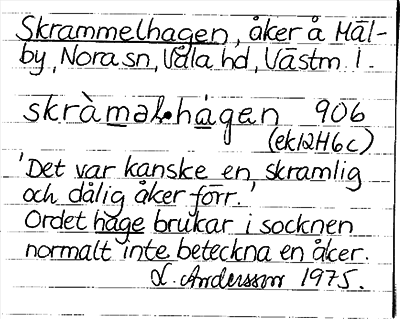 Skrammelhagen, åker å Mål-
by, Nora sn, Våla hd, Västm. l.
skràmǝlhágǝn 906
(ek12H6c)
'Det var kanske en skramlig
och dålig åker förr.'
Ordet hage brukar i socknen
normalt inte beteckna en åker.
L. Andersson 1975.